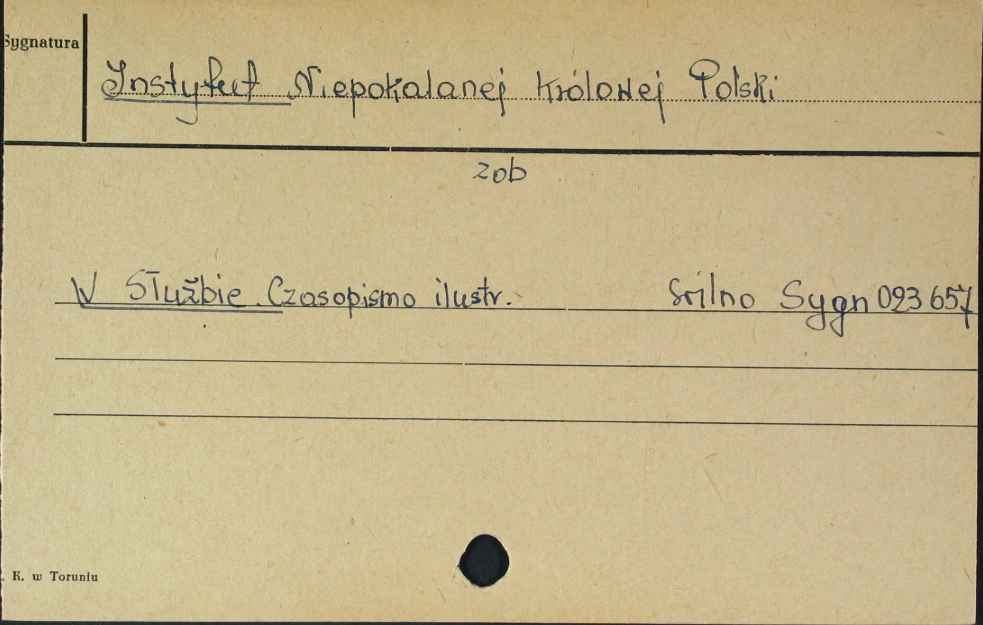 Sygnatura
Instytut Niepokalanej Królowej Polski
zob
W Służbie. Czasopismo ilustr. Sygn 093657
K. w Toruniu